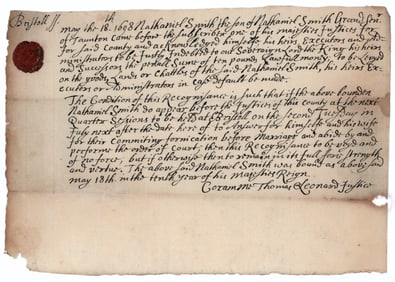 Bristoll ss.
May the 18th 1698 Nathaniel Smith the son of Nathaniel Smith
of Taunton Came before the subscriber one of his majesties Justices for
for said county and acknowledged himself his heirs Executors and Ad-
ministrators to be Justly Indebted to our Sovereign Lord the King his heirs
and Successors the penal Sume of ten pounds Lawful money To be Levyed
on the goods Lands or Chattles of the said Nathaniel Smith, his heirs Ex-
ecutors or Administrators in Case default be made.
The Condition of this Recognisance is such that if the above bounden
Nathaniel Smith do appear before the Justices of this county at the next
Quarter Sessions to be held at Bristoll on the second Tuesday in
July next after the date here of to Answer for himself and his wife
for their Committing fornication before Marriage and abide by and
performe the order of Court; then this Recognisance to be void and
of no force, but if otherwise then to remain in its full force strength
and vertue. The above said Nathaniel Smith was bound as above said
may 18th in the tenth year of his Majesties Reign.
Coram me Thomas Leonard Justice